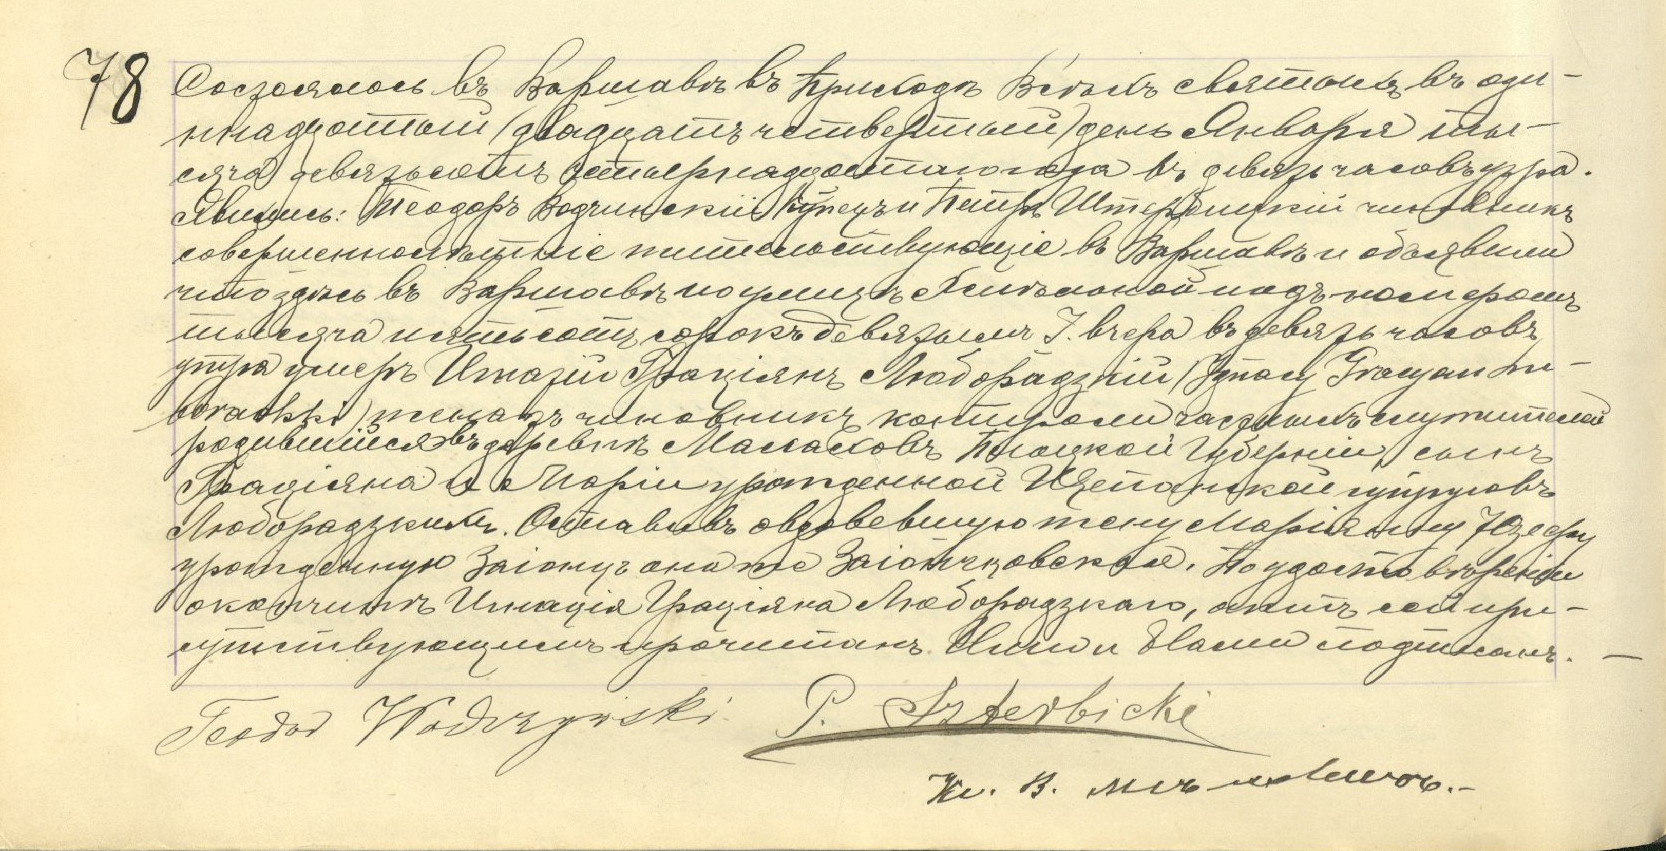 78
Состоялось въ Варшавѣ въ приходѣ Всѣхъ святыхъ въ оди-
ннадцатый (двадцать четвертый) день Января ты-
сяча девятьсотъ года въ девять часовъ утра.
Явились: Теодоръ Водчинскій купецъ и Петръ Штербицкій чиновникъ
совершеннолѣтніе жительствующіе въ Варшавѣ и объявили
что здѣсь въ Варшавѣ по улицѣ подъ номеромъ
тысяча пятьсотъ сорокъ девятымъ J. вчера въ девять часовъ
утра умеръ Игнатій Граціянъ Люборадзкій (Ignacy Gracyan Lu-
boradzki) чиновникъ контроли частныхъ служителей
родившійся въ деревнѣ Плоцкой Губерніи, сынъ
Граціяна и Маріи урожденной супруговъ
Люборадзкихъ. Оставивъ овдовевшую жену Маріянну Юзефу
урожденную она же. По удостовѣреніи
о кончинѣ Игнація Граціяна Люборадзкаго, актъ сей при-
сутствующимъ прочитанъ Ими и Нами подписанъ. —
Teodor Wodczyński. P. Szterbicki
Кс. В.